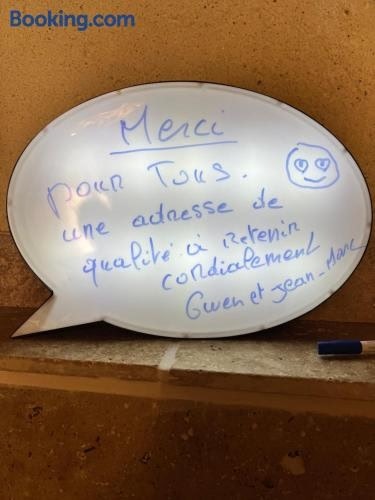 Booking.com
Merci
pour Tous.
une adresse de
qualité à Retenir
cordialement
Gwen et Jean-Marc